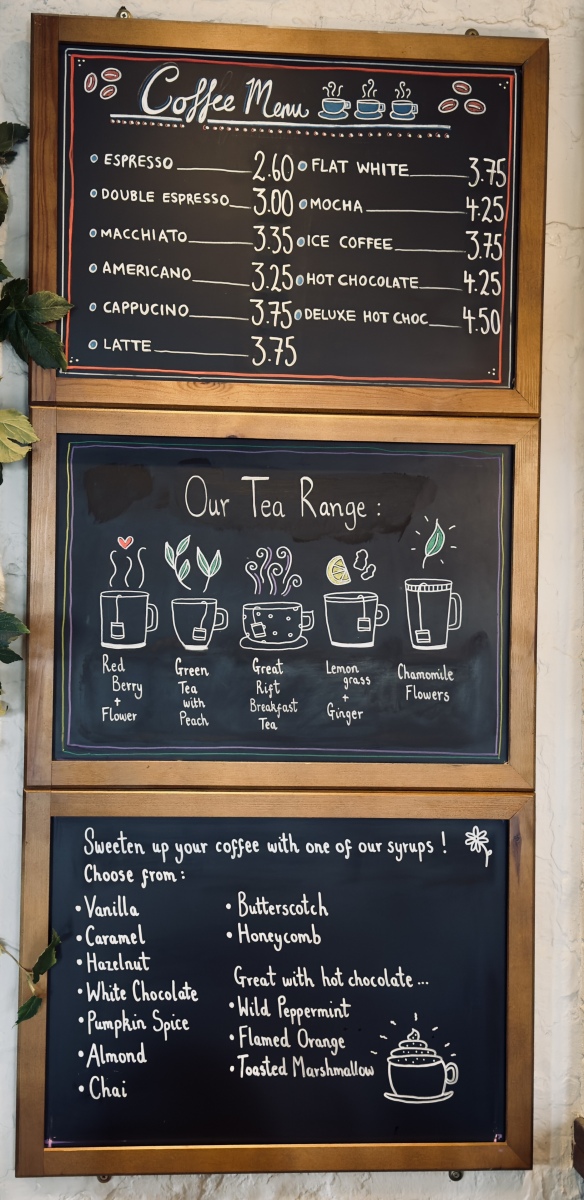 Coffee Menu
ESPRESSO 2.60
DOUBLE ESPRESSO 3.00
MACCHIATO 3.35
AMERICANO 3.25
CAPPUCINO 3.75
LATTE 3.75
FLAT WHITE 3.75
MOCHA 4.25
ICE COFFEE 3.75
HOT CHOCOLATE 4.25
DELUXE HOT CHOC 4.50
Our Tea Range:
Red
Berry
+
Flower
Green
Tea
with
Peach
Great
Rift
Breakfast
Tea
Lemon
grass
+
Ginger
Chamomile
Flowers
Sweeten up your coffee with one of our syrups!
Choose from:
• Vanilla
• Caramel
• Hazelnut
• White Chocolate
• Pumpkin Spice
• Almond
• Chai
• Butterscotch
• Honeycomb
Great with hot chocolate...
• Wild Peppermint
• Flamed Orange
• Toasted Marshmallow